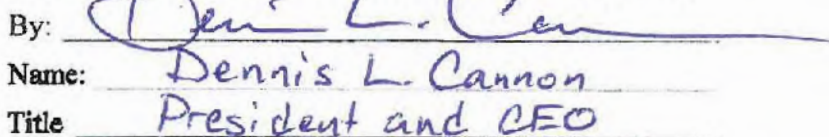 By: Dennis L. Cannon
Name: Dennis L. Cannon
Title President and CEO